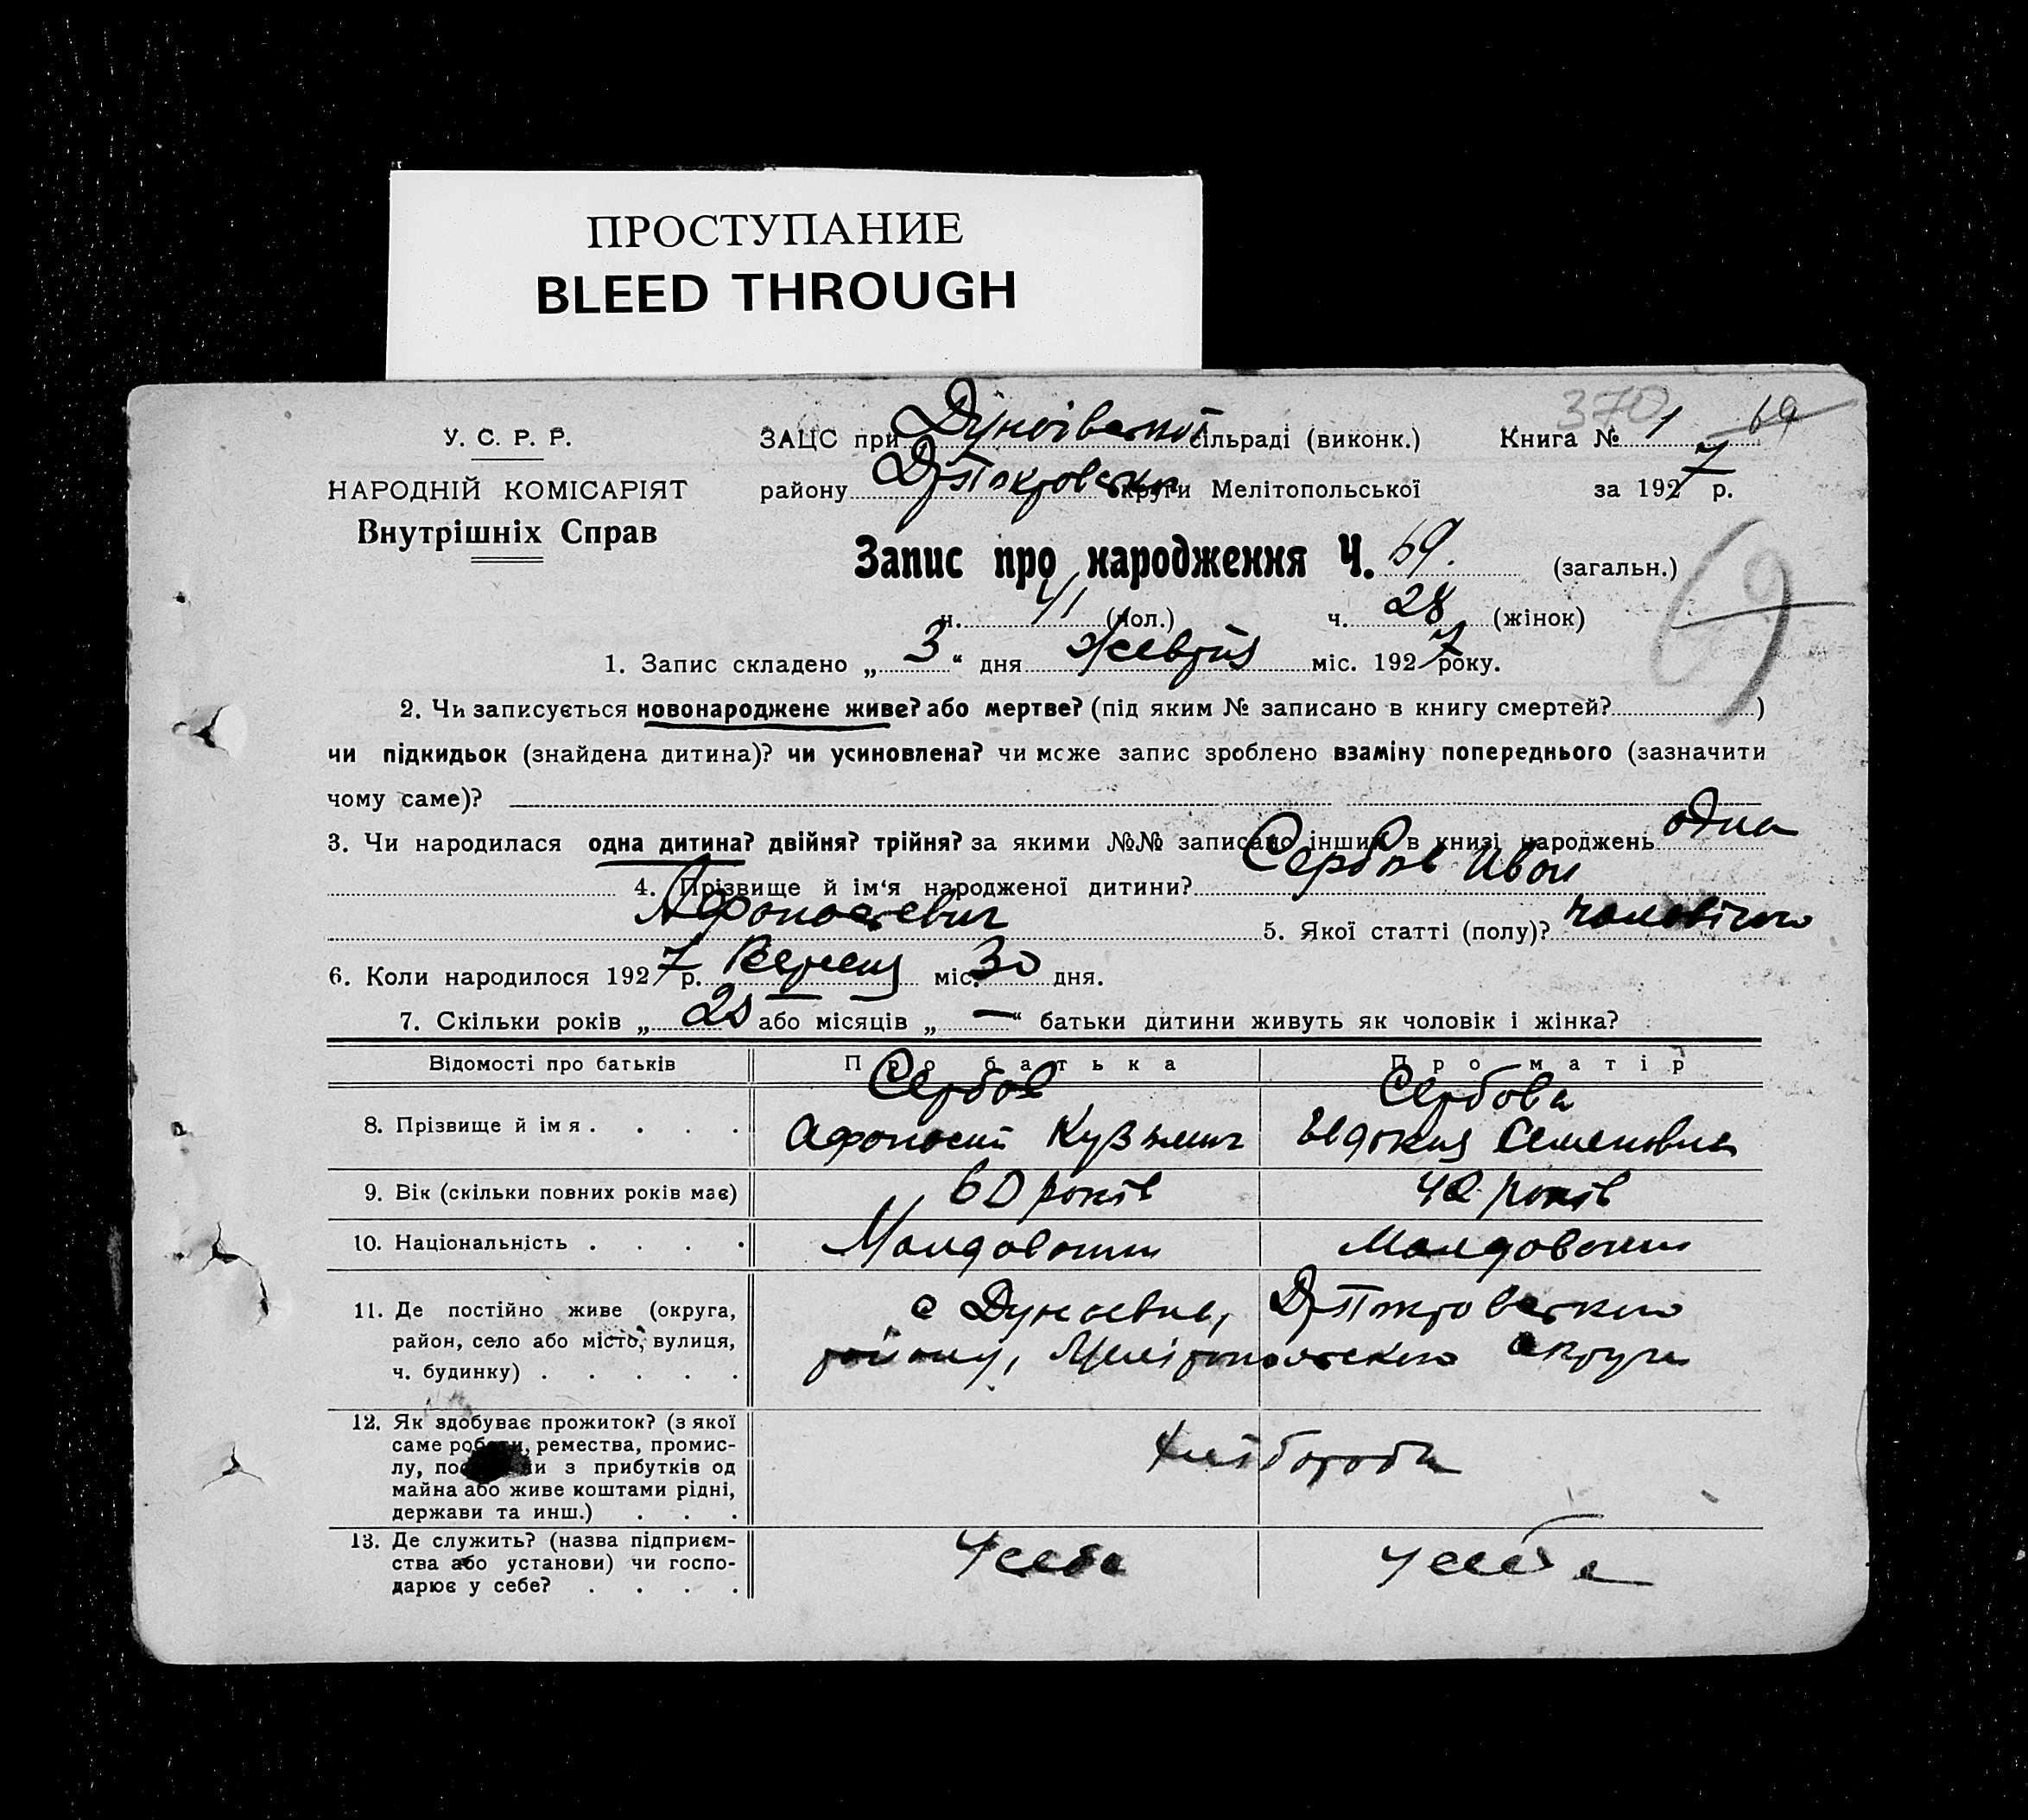 ПРОСТУПАНИЕ
BLEED THROUGH
370 1 69
У. С. Р. Р.
ЗАЦС при Дунаівській сільраді (виконк.) Книга №
НАРОДНІЙ КОМІСАРІЯТ
району округи Мелітопольської за 1927 р.
Внутрішніх Справ
Запис про народження Ч. 69. (загальн.)
69
ч. 41 (чол.) ч. 28 (жінок)
1. Запис складено „ 3 “ дня Жевтня міс. 1927 року.
2. Чи записується новонароджене живе? або мертве? (під яким № записано в книгу смертей? )
чи підкидьок (знайдена дитина)? чи усиновлена? чи може запис зроблено взаміну попереднього (зазначити
чому саме)?
3. Чи народилася одна дитина? двійня? трійня? за якими №№ записано інших в книзі народжень одна
4. Прізвище й ім‘я народженої дитини? Сербов Иван
Афонасевич 5. Якої статті (полу)?
6. Коли народилося 1927 р. Вересня міс. 30 дня.
7. Скільки років „ 20 або місяців „ — “ батьки дитини живуть як чоловік і жінка?
Відомості про батьків Про батька Про матір
8. Прізвище й ім я . . . . Сербов Сербова
Афонасий Кузьмич Евдокия Семеновна
9. Вік (скільки повних років має) 60 років 42 років
10. Національність . . . .
11. Де постійно живе (округа, с Дунаевка, Д-Покровського
район, село або місто, вулиця, району, Мелітопольского округи
ч. будинку) . . . . .
12. Як здобуває прожиток? (з якої
саме роботи, ремества, промис- хлібороба
лу, з прибутків од
майна або живе коштами рідні,
держави та инш.) . . .
13. Де служить? (назва підприєм- У себе У себе
ства або установи) чи госпо-
дарює у себе? . . . .